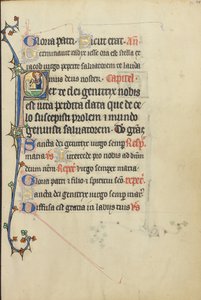 Gloria patri Sicut erat an
Germinavit radix iesse orta est stella ex
iacob virgo peperit salvatorem te lauda
mus deus noster Capitel
Per te dei genitrix nobis
est vita perdita data que de ce
lo suscepisti prolem et mundo
genuisti salvatorem Deo gras
Sancta dei genitrix virgo semp
maria Intercede pro nobis ad dnm
deum nrm Repet virgo semper maria
Gloria patri et filio et spiritui sco repet
Sancta dei genitrix virgo semp mar
Diffusa est gratia in labiis tuis